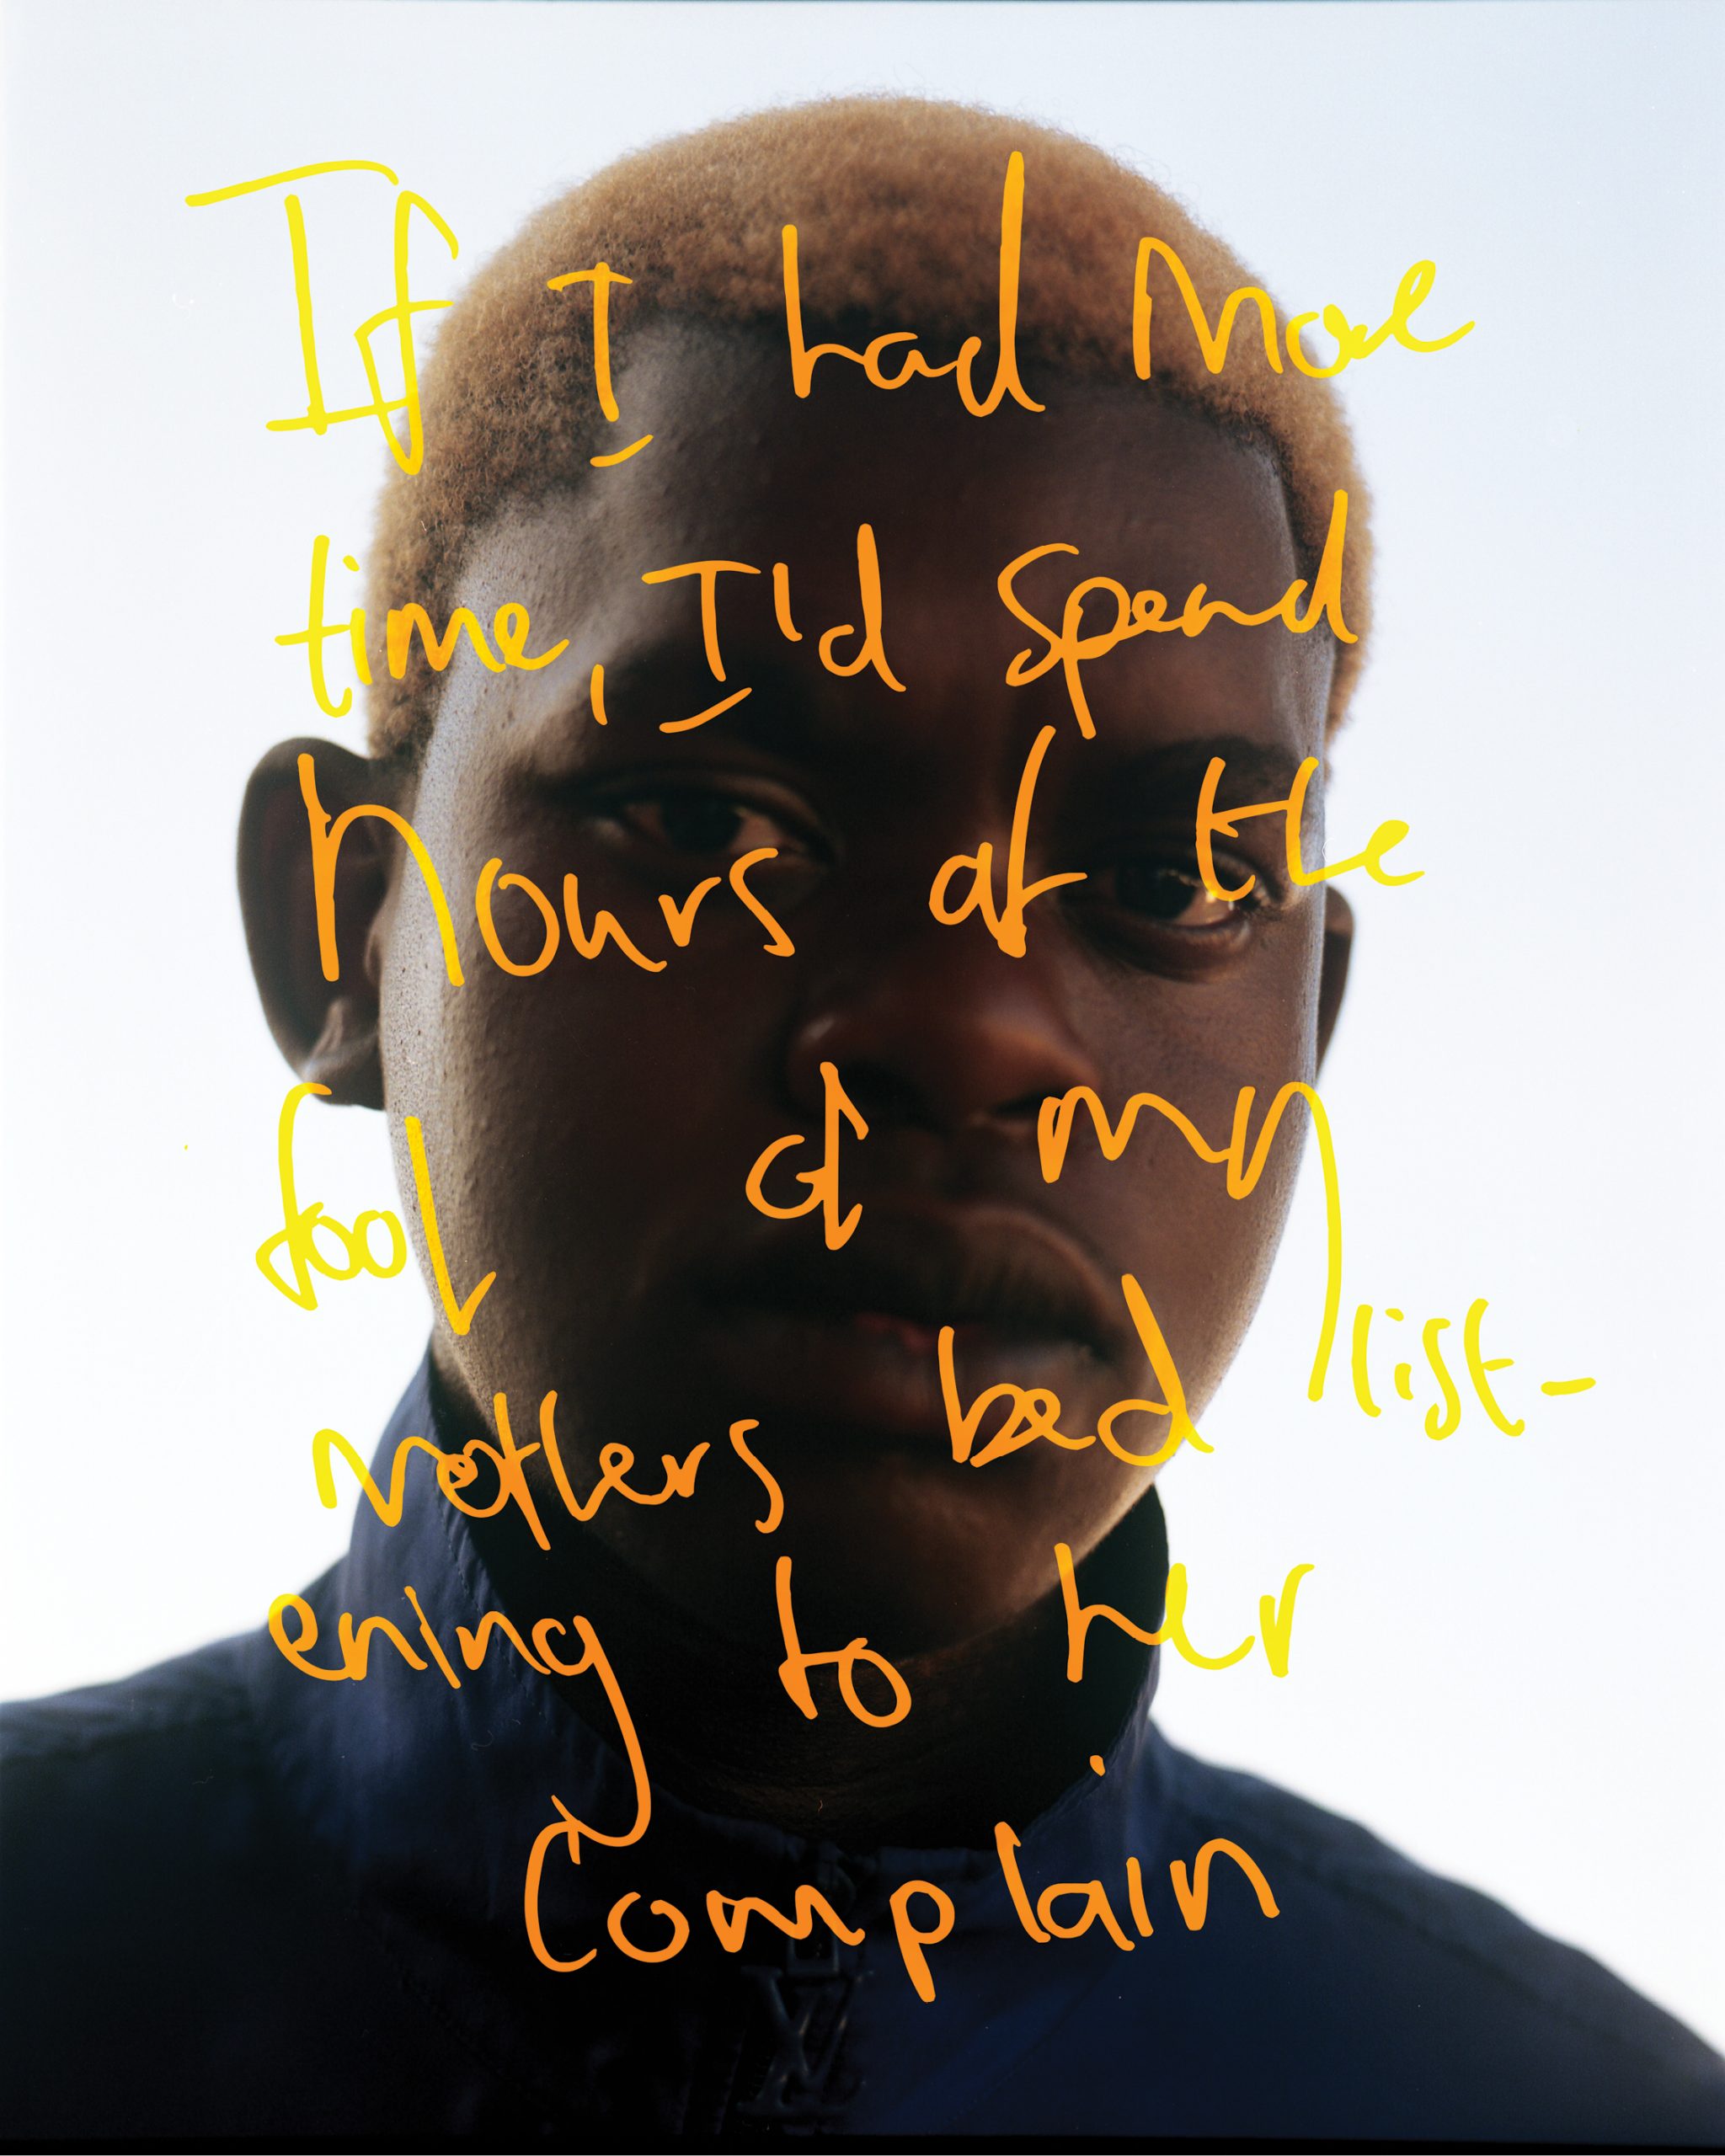 If I had more
time, I'd spend
hours at the
fool of my
mothers bed list-
ening to her
complain